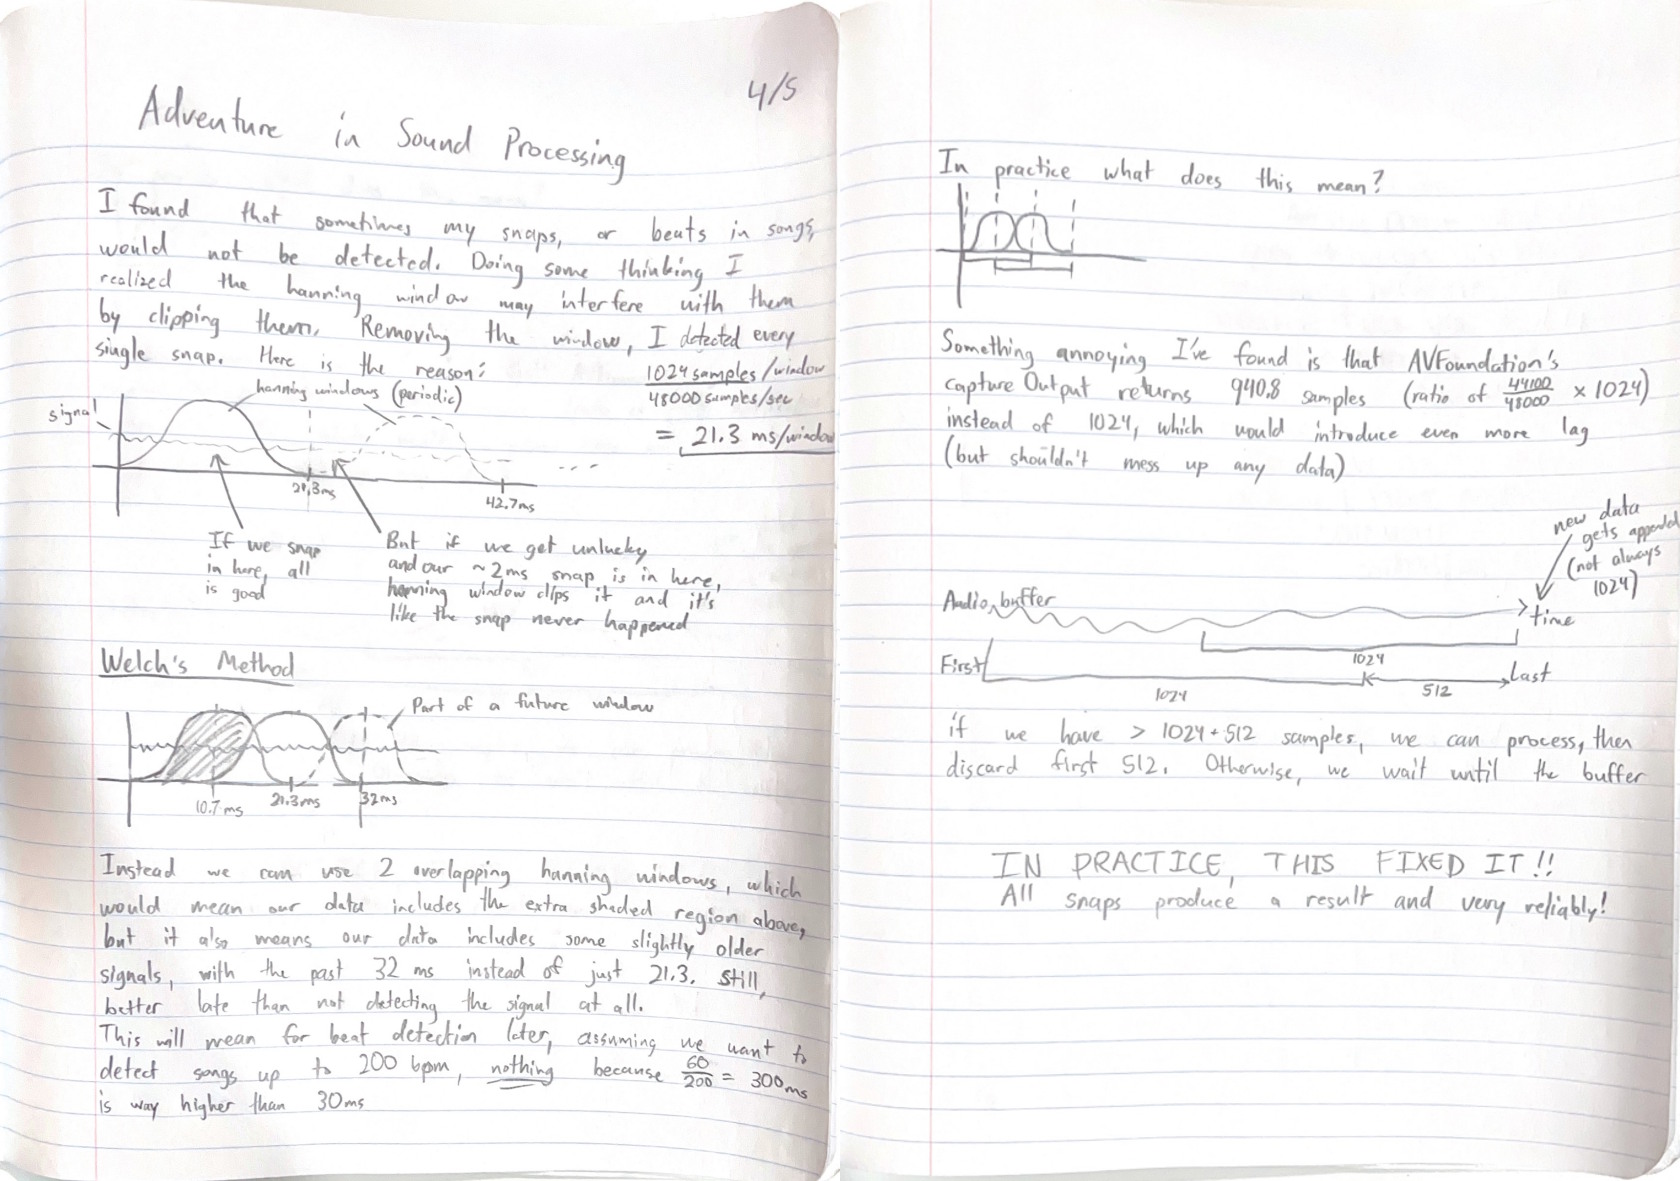 4/5
Adventure in Sound Processing
I found that sometimes my snaps, or beats in songs,
would not be detected. Doing some thinking I
realized the hanning window may interfere with them
by clipping them. Removing the window, I detected every
single snap. Here is the reason:
1024 samples/window
48000 samples/sec
= 21.3 ms/window
hanning windows (periodic)
signal
21.3ms
42.7ms
If we snap
in here, all
is good
But if we get unlucky
and our ~2ms snap is in here,
hanning window clips it and it's
like the snap never happened
Welch's Method
Part of a future window
10.7ms
21.3ms
32ms
Instead we can use 2 overlapping hanning windows, which
would mean our data includes the extra shaded region above,
but it also means our data includes some slightly older
signals, with the past 32 ms instead of just 21.3. Still,
better late than not detecting the signal at all.
This will mean for beat detection later, assuming we want to
detect songs up to 200 bpm, nothing because 60/200 = 300ms
is way higher than 30ms
In practice what does this mean?
Something annoying I've found is that AVFoundation's
capture Output returns 940.8 samples (ratio of 44100/48000 × 1024)
instead of 1024, which would introduce even more lag
(but shouldn't mess up any data)
new data
gets appended
(not always
1024)
Audio buffer
time
1024
First
Last
1024
512
if we have > 1024+512 samples, we can process, then
discard first 512. Otherwise, we wait until the buffer
IN PRACTICE, THIS FIXED IT!!
All snaps produce a result and very reliably!